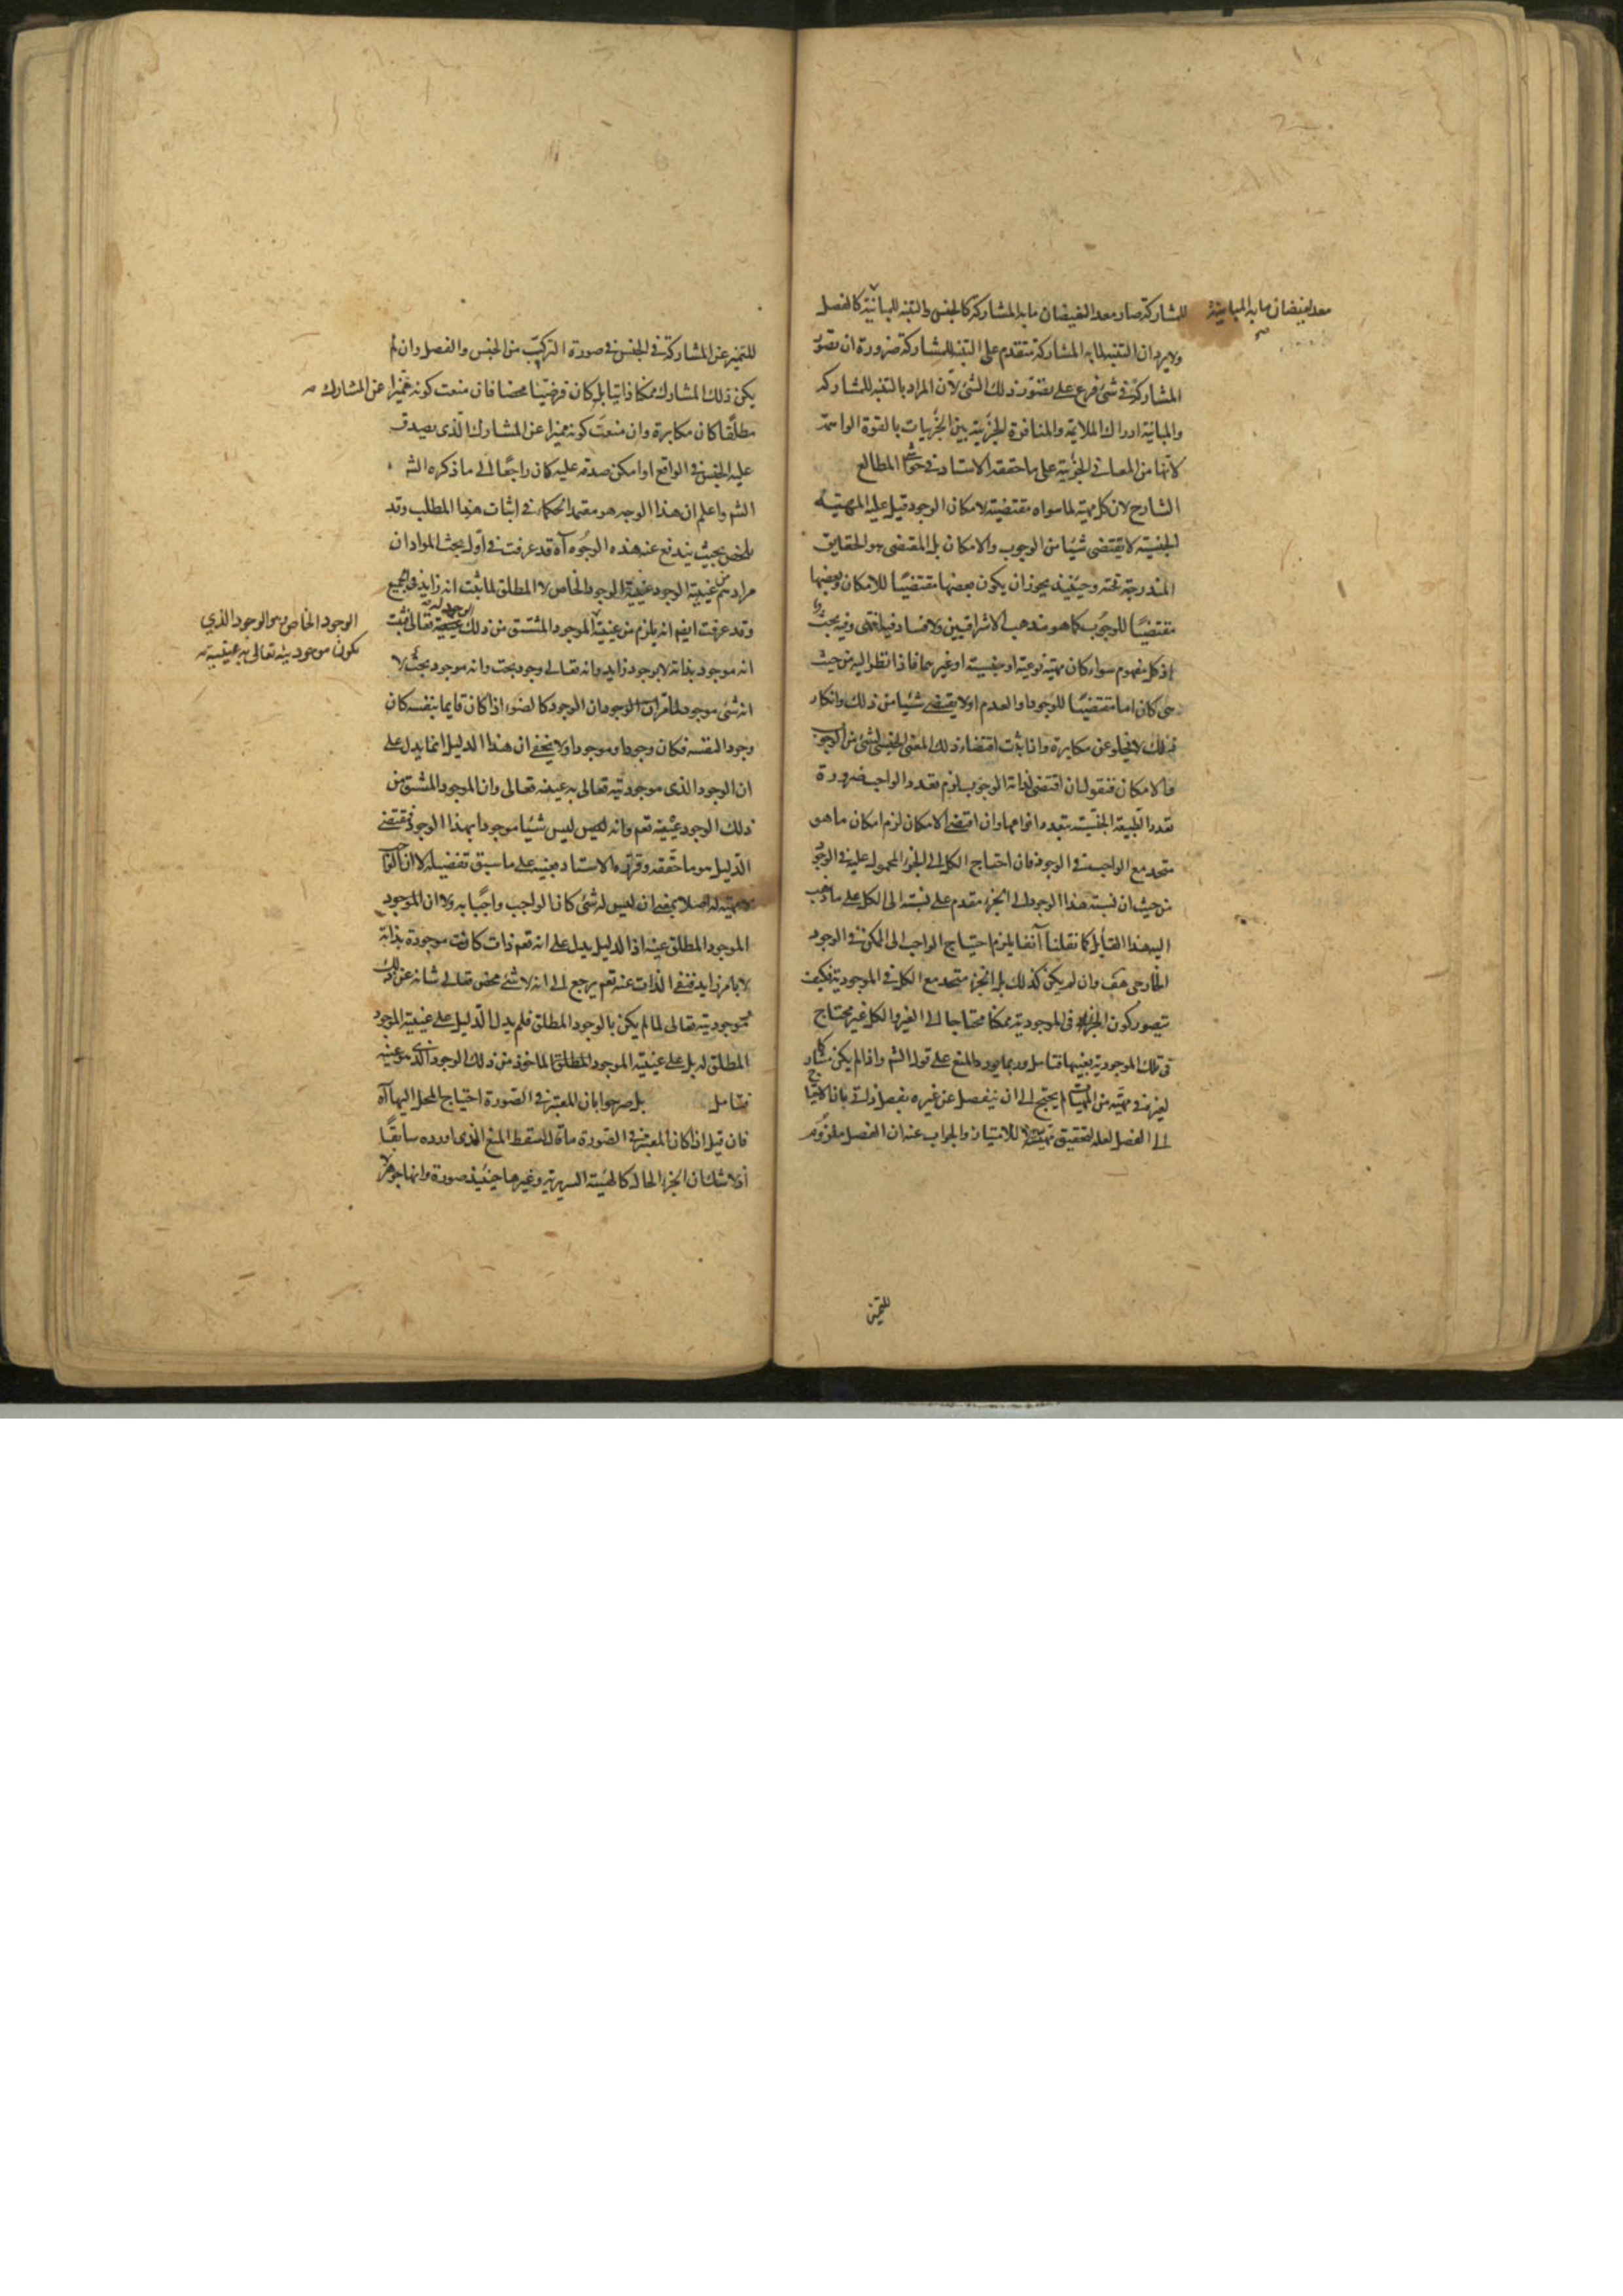 للمشاركة صار معد الفيضان ما به المشاركة كالجنس والتنبه للمباينة كالفصل
معد لفيضان ما به المباينة
صح
ولا يرد ان التنبه لما به المشاركة متقدم على التنبه للمشاركة ضرورة ان تصور
المشاركة في شئ فرع على تصور ذلك الشئ لان المراد بالتنبه للمشاركة
والمباينة ادراك الملايمة والمنافرة الجزئية بين الجزئيات بالقوة الواهمة
لانها من المعاني الجزئية على ما حققه الاستاد في حواشي المطالع
الشارح لان كل مهية لما سواه مقتضية لامكان الوجود قيل عليه المهية
الجنسية لا يقتضى شيئا من الوجوب والامكان بل المقتضى هو الحقايق
المندرجة تحته وحينئذ يجوز ان يكون بعضها مقتضيًا للامكان وبعضها
مقتضيًا للوجوب كما هو مذهب الاشراقيين ولا فساد فيه انتهى وفيه بحث
اذ كل مفهوم سواء كان مهية نوعية او جنسية او غيرهما فاذا نظر اليه من حيث
هي كان اما مقتضيًا للوجود او العدم اولا يقتضي شيئا من ذلك وانكار
ذلك لا يخلو عن مكابرة واذا ثبت اقتضاء ذلك المعنى الجنسي لشئ من الوجوب
والامكان فنقول ان اقتضى لذاته الوجوب لزم تعدد الواجب ضرورة
تعدد الطبيعة الجنسية بتعدد انواعها وان اقتضى الامكان لزم امكان ما هو
متحد مع الواجب في الوجود فان احتياج الكل الى الجزء المحمول عليه في الوجود
من حيث ان نسبة هذا الوجود الى الجزء مقدم على نسبته الى الكل على ما ذهب
اليه هذا القايل كما نقلنا آنفا يلزم احتياج الواجب الى الممكن في الوجود
الخارجي هف وان لم يكن كذلك بل الجزء متحد مع الكل في الموجودية فكيف
يتصور كون الجزء في الموجودية ممكنا محتاجا الى الغير والكل غير محتاج
في تلك الموجودية بعينها فتامل وربما يورد المنع على قول الشم واذا لم يكن مشاركا
لغيره في مهية من المهيات لم يحتج الى ان ينفصل عن غيره بفصل ذاتي بان الاحتياج
الى الفصل لعله لتحقيق مهيته لا للامتياز والجواب عنه ان الفصل ملزوم
للتميز
للتميز عن المشاركة في الجنس في صورة التركيب من الجنس والفصل وان لم
يكن ذلك المشارك ممكنا ذاتيا بل كان فرضيًا محضا فان منعت كونه مميزا عن المشارك
مطلقا كان مكابرة وان منعت كونه مميزا عن المشارك الذى يصدق
عليه الجنس في الواقع او امكن صدقه عليه كان راجعًا الى ما ذكره الشم
الشم واعلم ان هذا الوجه هو معتمد الحكماء في اثبات هذا المطلب وقد
يلخص بحيث يندفع عنه هذه الوجوه آه قد عرفت في اول بحث المواد ان
مرادهم من عينية الوجود عينية الوجود الخاص لا المطلق لما ثبت انه زايد في الجميع
وقد عرفت ايضم انه يلزم من عينية الموجود المشتق من ذلك الوجود له تعالى فثبت
الوجود الخاص هو الوجود الذي
يكون موجوديته تعالى به عينيته
انه موجود بذاته لا بوجود زايد وانه تعالى وجود بحت وانه موجود بحث لا
انه شئ موجود لما مر ان الوجود كالضوء اذا كان قايما بنفسه كان
وجودا لنفسه فكان وجودا وموجودا ولا يخفى ان هذا الدليل انما يدل على
ان الوجود الذى موجوديته تعالى به عينه تعالى وان الموجود المشتق من
ذلك الوجود عينه تعم وانه ليس شيئا موجودا بهذا الوجود فمقتضى
الدليل هو ما حققه وقرره الاستاد بعينه على ما سبق تفصيله لا ان الواجب
لا مهية له اصلا بمعنى ان ليس له شئ كان الواجب واجبًا به ولا ان الموجود
الموجود المطلق عينه اذ الدليل يدل على انه تعم ذات كانت موجودة بذاته
لا بامر زايد فنفى الذات عنه تعم يرجع الى انه لا شئ محض تعالى شانه عن ذلك
وموجوديته تعالى لما لم يكن بالوجود المطلق فلم يدل الدليل على عينية الوجود
المطلق له بل على عينية الموجود المطلق الماخوذ من ذلك الوجود الذى هو عينه
فتامل بل صرحوا بان المعتبر في الصورة احتياج المحل اليها آه
فان قيل اذا كان المعتبر في الصورة ما ذكر سقط المنع الذى اورده سابقًا
اذ لا شك ان الجزء الحال كالهيئة السريرية وغيرها حينئذ صورة وانها جوهر